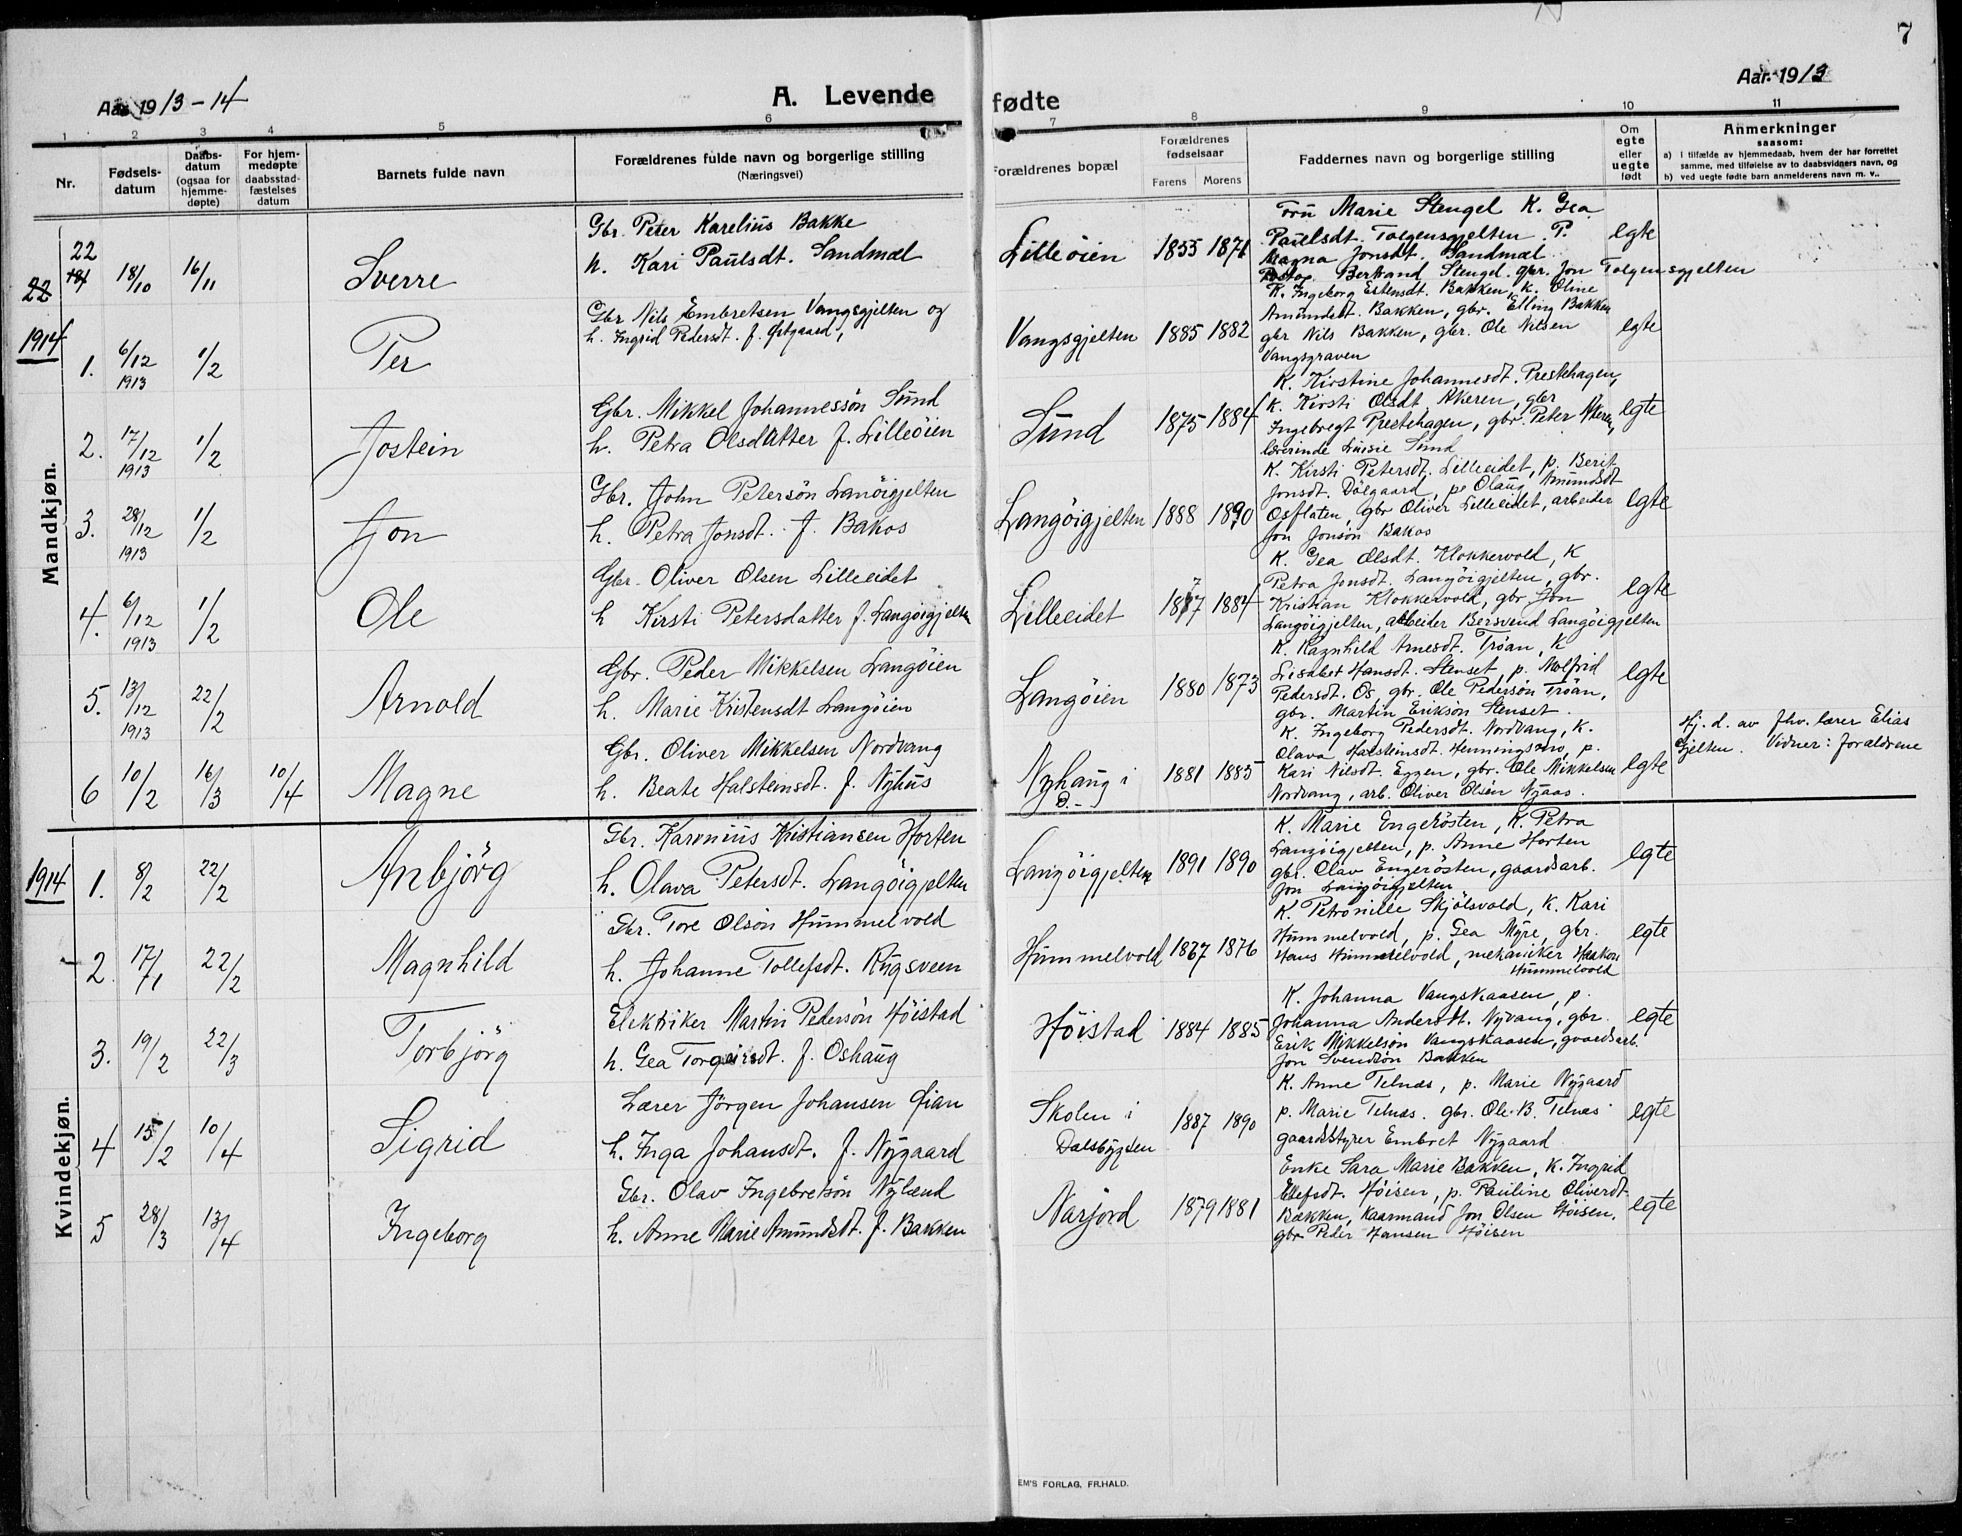 7
Aar 1913-14
A. Levende
fødte
Aar 1913
1 2 3 4 5 6 7 8 9 10 11
Nr.
Fødsels-
datum
Daabs-
datum
(ogsaa for
hjemme-
døpte)
For hjem-
medøpte
daabsstad-
fæstelses
datum
Barnets fulde navn
Forældrenes fulde navn og borgerlige stilling
(Næringsvei)
Forældrenes bopæl
Forældrenes
fødselsaar
Farens Morens
Faddernes navn og borgerlige stilling
Om
egte
eller
uegte
født
Anmerkninger
saasom:
a) i tilfælde av hjemmedaab, hvem der har forrettet
samme, med tilføielse av to daabsvidners navn, og
b) ved uegte fødte barn anmelderens navn m. v..
Mandkjøn.
22
22 18/10 16/11 Sverre
Gbr. Peter Karelius Bakke
h. Kari Paulsdt. Sandmæl
Lilleöien 1855 1871
Marie Stengel K. Gea
Paulsdt. Tolgensgjelten. P.
Magna Jonsdt. Sandmæl
Bertrand Stengel. gbr. Jon Tolgensgjelten
egte
1914
1. 6/12 1913 1/2 Per
Gbr Nils Embretsen Vangsgjelten og
h. Ingrid Pedersdt. f. Østgaard,
Vangsgjelten 1885 1882
K. Ingeborg Estensdt. Bakken, k. Oline
Amundsdt. Bakken, gbr. Elling Bakken
gbr Nils Bakken, gbr. Ole Nilsen
Vangsgraven
egte
2. 17/12 1913 1/2 Jostein
Gbr. Mikkel Johannessön Sund
h. Petra Olsdatter f. Lilleöien
Sund 1875 1884
K. Kirstine Johannesdt. Prestehagen,
K. Kirsti Olsdt Akeren, gbr
Ingebregt Prestehagen, gbr. Peter Akeren,
lærerinde Luisie Sund
egte
3. 28/12 1913 1/2 Jon
Gbr. John Petersön Langöigjelten
h. Petra Jonsdt. f. Bakos
Langöigjelten 1888 1890
K. Kirsti Petersdt. Lilleeidet, p. Berit
Jonsdt. Dölgaard, p. Olaug Amundsdt
Osflaten, gbr Oliver Lilleeidet, arbeider
Jon Jonsön Bakos
egte
4. 6/12 1913 1/2 Ole
Gbr. Oliver Olsen Lilleeidet
h Kirsti Petersdatter f. Langöigjelten
Lilleeidet 1877 1884
K. Gea Olsdt. Klokkervold, K
Petra Jonsdt. Langöigjelten, gbr.
Kristian Klokkervold, gbr Jon
Langöigjelten, arbeider Bersvend Langöigjelten
egte
5. 13/12 1913 22/2 Arnold
Gbr. Peder Mikkelsen Langöien
h. Marie Kristensdt Langöien
Langöien 1880 1873
K. Ragnhild Arnesdt. Tröan, K
Lisabet Hansdt. Stenset, p. Malfrid
Pedersdt. Os, gbr. Ole Pedersön Tröan,
gbr. Martin Eriksön Stenset.
egte
6 10/2 16/3 10/4 Magne
Gbr. Oliver Mikkelsen Nordvang
h. Beate Halsteinsdt. f. Nyhus
Nyhaug i
D.-
1881 1885
K. Ingeborg Pedersdt. Nordvang, K.
Olava Halsteinsdt. Henningsmo, p.
Kari Nilsdt. Eggen, gbr. Ole Mikkelsen
Nordvang, arb. Oliver Olsen Nyaas.
egte
Hj. d. av fhv. lærer Elias
Gjelten. Vidner: forældrene
Kvindekjøn.
1914
1. 8/2 22/2 Anbjörg
Gbr. Karenius Kristiansen Horten
h. Olava Petersdt. Langöigjelten
Langöigjelten 1891 1890
K. Marie Engerösten, K. Petra
Langöigjelten, p. Anne Horten
gbr. Olav Engerösten, gaardsarb.
Jon Langöigjelten
egte
2 17/1 22/2 Magnhild
Gbr. Tore Olsön Hummelvold
h. Johanne Tollefsdt. Rugsveen
Hummelvold 1867 1876
K. Petronille Skjölsvold, k. Kari
Hummelvold, p. Gea Myre, gbr.
Hans Hummelvold, mekaniker Haakon
Hummelvold
egte
3. 19/2 22/3 Torbjörg
Elektriker Martin Pedersön Höistad
h. Gea Torgeirsdt. f. Oshaug
Höistad 1884 1885
K. Johanna Vangskaasen, p.
Johanna Andersdt. Nyvang, gbr.
Erik Mikkelsön Vangskaasen, gaardsarb.
Jon Svendsön Bakken
egte
4 15/2 10/4 Sigrid
Lærer Jörgen Johansen Øian
h. Inga Johansdt. f. Nygaard
Skolen i
Dalsbygden
1887 1890
K. Anne Telnæs, p. Marie Nygaard
p. Marie Telnæs. gbr. Ole B. Telnæs
gaardsstyrer Embret Nygaard
egte
5 28/3 13/4 Ingeborg
Gbr. Olav Ingebretsön Nylænd
h. Anne Marie Amundsdt. f. Bakken
Narjord 1879 1881
Enke Sara Marie Bakken, K. Ingrid
Ellefsdt. Höisen, p. Pauline Oliverdt
Bækken, kaarmand Jon Olsen Höisen.
gbr Peder Hansen Höisen
egte
EM'S FORLAG, FR.HALD.